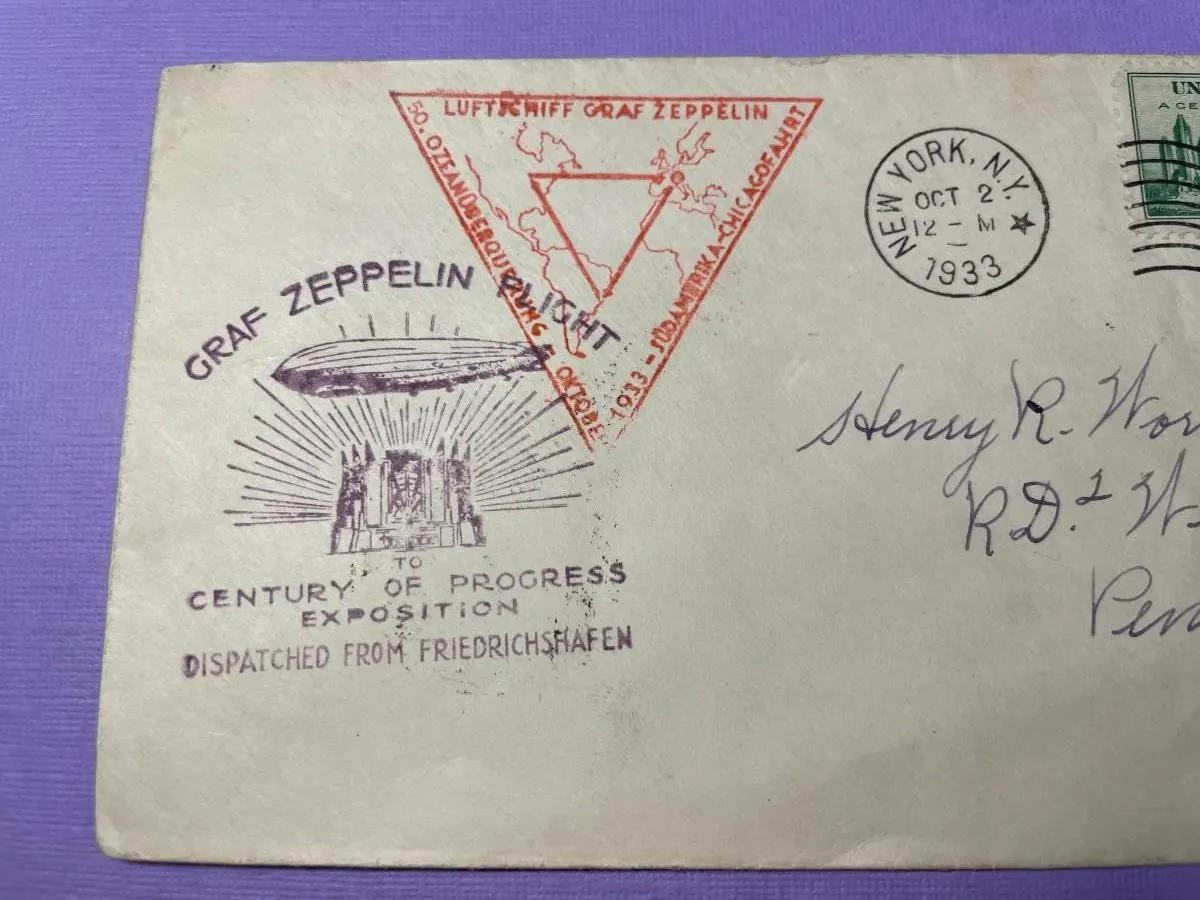 LUFTSCHIFF GRAF ZEPPELIN
50. OZEANÜBERQUERUNG
OKTOBER 1933 - SÜDAMERIKA-CHICAGOFAHRT
NEW YORK, N.Y.
OCT 2
12 - M
1933
UN
A CE
GRAF ZEPPELIN FLIGHT
TO
CENTURY OF PROGRESS
EXPOSITION
DISPATCHED FROM FRIEDRICHSHAFEN
Henry R. Wor
R.D. 1 W
Pen